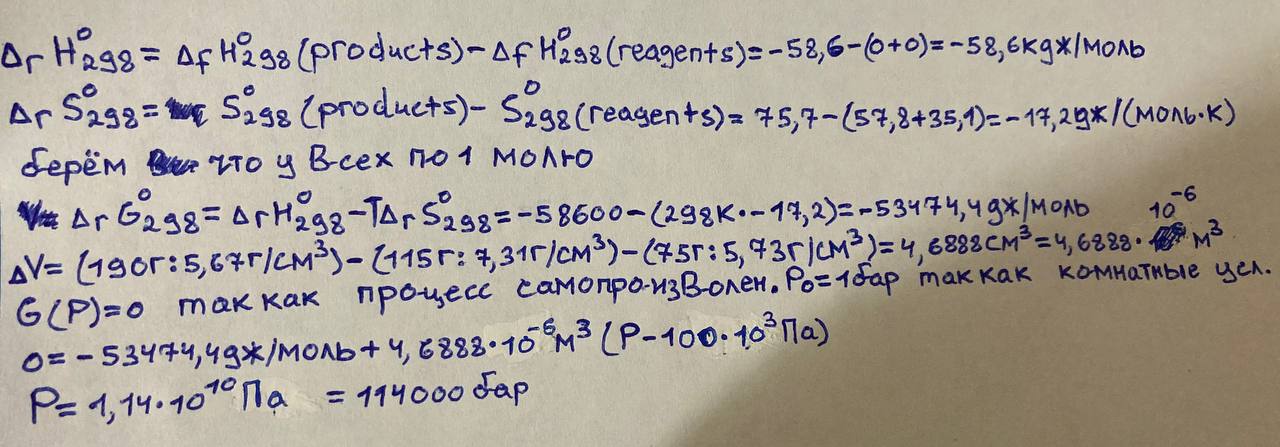 ΔrH⁰298 = ΔfH⁰298(products) - ΔfH⁰298(reagents) = -58,6 - (0+0) = -58,6 кдж/моль
ΔrS⁰298 = S⁰298(products) - S⁰298(reagents) = 75,7 - (57,8+35,1) = -17,2 дж/(моль·К)
берём что у всех по 1 молю
ΔrG⁰298 = ΔrH⁰298 - TΔrS⁰298 = -58600 - (298К · -17,2) = -53474,4 дж/моль
ΔV = (190г : 5,67г/см³) - (115г : 7,31г/см³) - (75г : 5,73г/см³) = 4,6888см³ = 4,6888 · 10⁻⁶ м³
G(P) = 0 так как процесс самопроизволен. P₀ = 1 бар так как комнатные усл.
0 = -53474,4 дж/моль + 4,6888 · 10⁻⁶ м³ (P - 100 · 10³ Па)
P = 1,14 · 10¹⁰ Па = 114000 бар